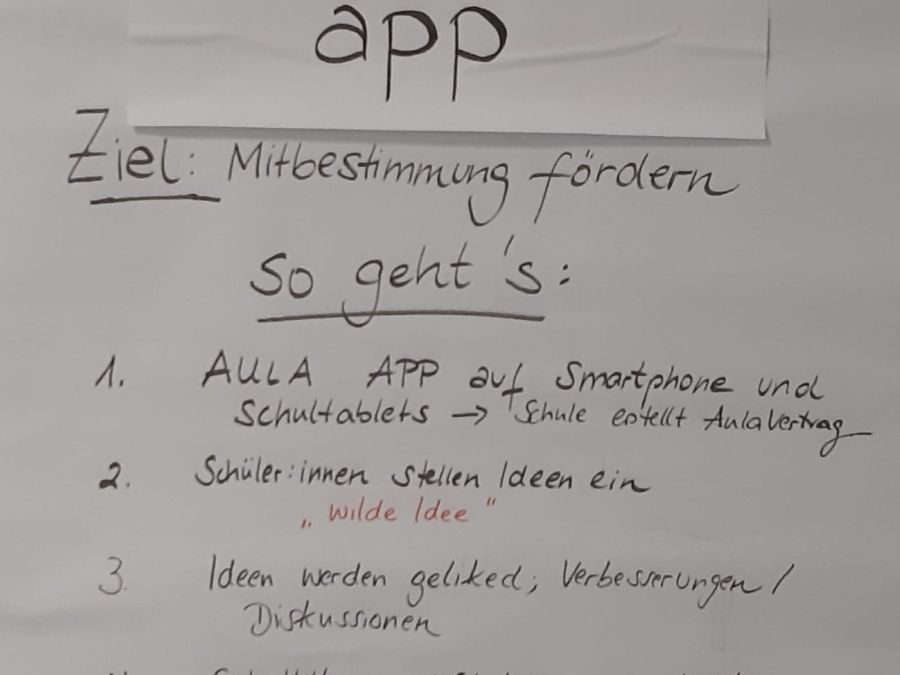 app
Ziel: Mitbestimmung fördern
So geht's:
1. AULA APP auf Smartphone und
Schultablets → Schule erstellt AulaVertrag
2. Schüler:innen stellen Ideen ein
„wilde Idee"
3. Ideen werden geliked; Verbesserungen/
Diskussionen